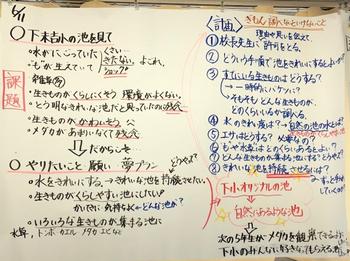 5/11
○下木吉小の池を見て
課題
水がにごっていた くさい…
きたない、よごれ、
ショック!
・生きものがくらしにくそう 環境がよくない。
・とう明なきれいな池だと思ってたのに残念
・生きものがかわいそう
・メダカがあまりいなくて残念
だからこそ
○やりたいこと 願い・夢プラン
どうやって?
・水をきれいにする。→きれいな池を持続させたい。
・生きものがくらしやすい池にしたい!
かいてきに 気持ちよく どんな池?
・いろいろな生きものが集まる池に
水草、トンボ カエル メダカ エビ など
<計画>
ぎもん 調べないといけないこと
理由や思いを伝えて、
①校長先生に許可をとる。
②どういう手順で池をきれいにするとよいか?
③すんでいる生きものはどうする?
→一時的にバケツに?
そもそもどんな生きものが、
どのくらいいるか調べる。
④水のきれい度は?→自然の池の水とは?
⑤エサはどうする? 必要なの?
⑥もや水草はどのくらいあるとよい?
⑦どんな生きものが集まる池にする?どうやって?
⑧きれいな池を持続させるには?
下小オリジナルの池
自然にあるような池
次の5年生がメダカを観察できるように
下小のみんなに好きになってもらえる池